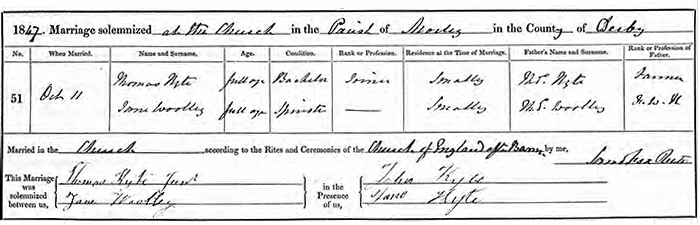 1847. Marriage solemnized at the Church in the Parish of Morley in the County of Derby
No. When Married. Name and Surname. Age. Condition. Rank or Profession. Residence at the Time of Marriage. Father's Name and Surname. Rank or Profession of Father.
51 Oct 11 Thomas Kyte full age Bachelor Joiner Smalley Kyte Farmer
Jane Woolley full age Spinster — Smalley Woolley F. W. K
Married in the Church according to the Rites and Ceremonies of the Church of England after Banns by me,
This Marriage was solemnized between us, Thomas Kyte Junr in the Presence of us, John Kyte
Jane Woolley Kyte